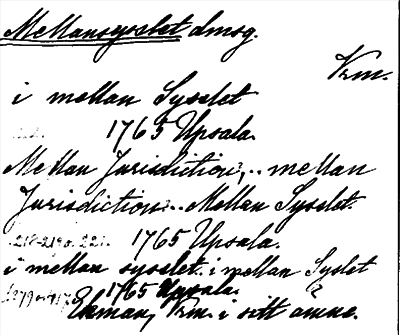 Mellansyselet dmsg.
Vrm.
i mellan Syselet
1765 Upsala.
Mellan Jurisdiction, .. mellan
Jurisdiction .. Mellan Syselet.
1765 Upsala.
i mellan syselet. i mellan Syslet
1765 Upsala.
Ekman, Vrm. i sitt ämne.